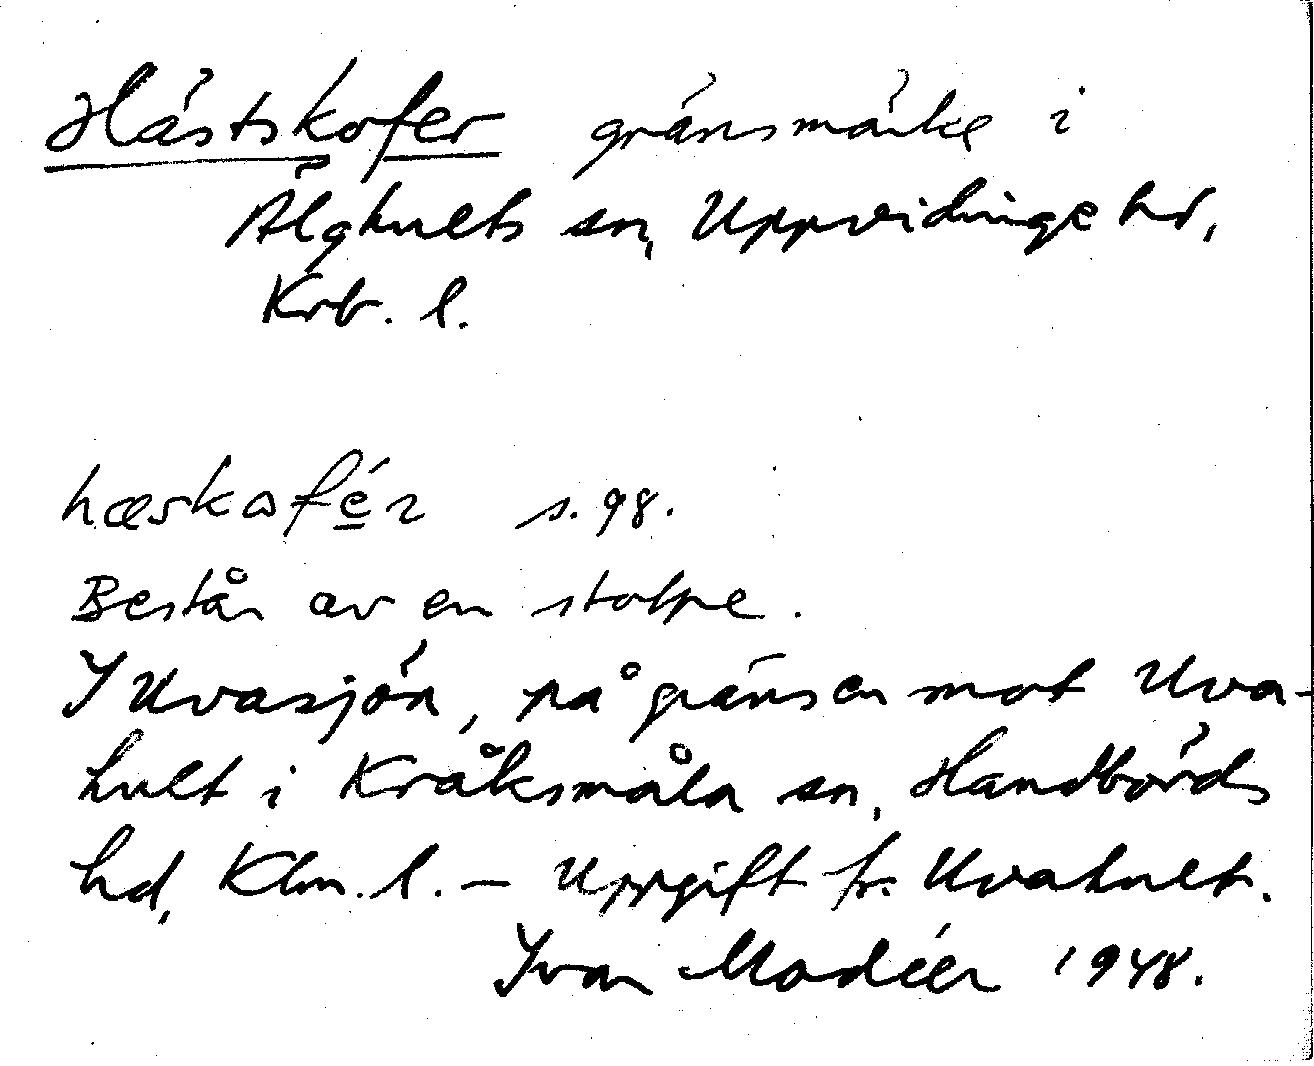 Hästskofer gränsmärke i
Älghults sn, Uppvidinge hd,
Krb. l.
hæskofér s. 98.
Består av en stolpe.
I Uvasjön, på gränsen mot Uva-
hult i Kråksmåla sn, Handbörds
hd, Klm. l. – Uppgift fr. Uvahult.
Ivar Modéer 1948.